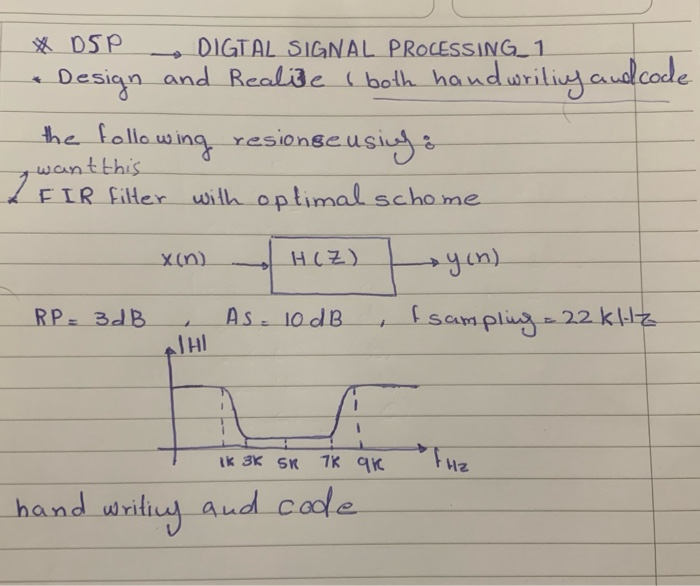 * DSP → DIGTAL SIGNAL PROCESSING_1
* Design and Realize ( both handwriting and code
the following resionse using :
want this
FIR filter with optimal schome
x(n) → H(Z) → y(n)
RP = 3dB , AS = 10 dB , f sampling = 22 kHz
|H|
1K 3K 5K 7K 9K f Hz
hand writing and code